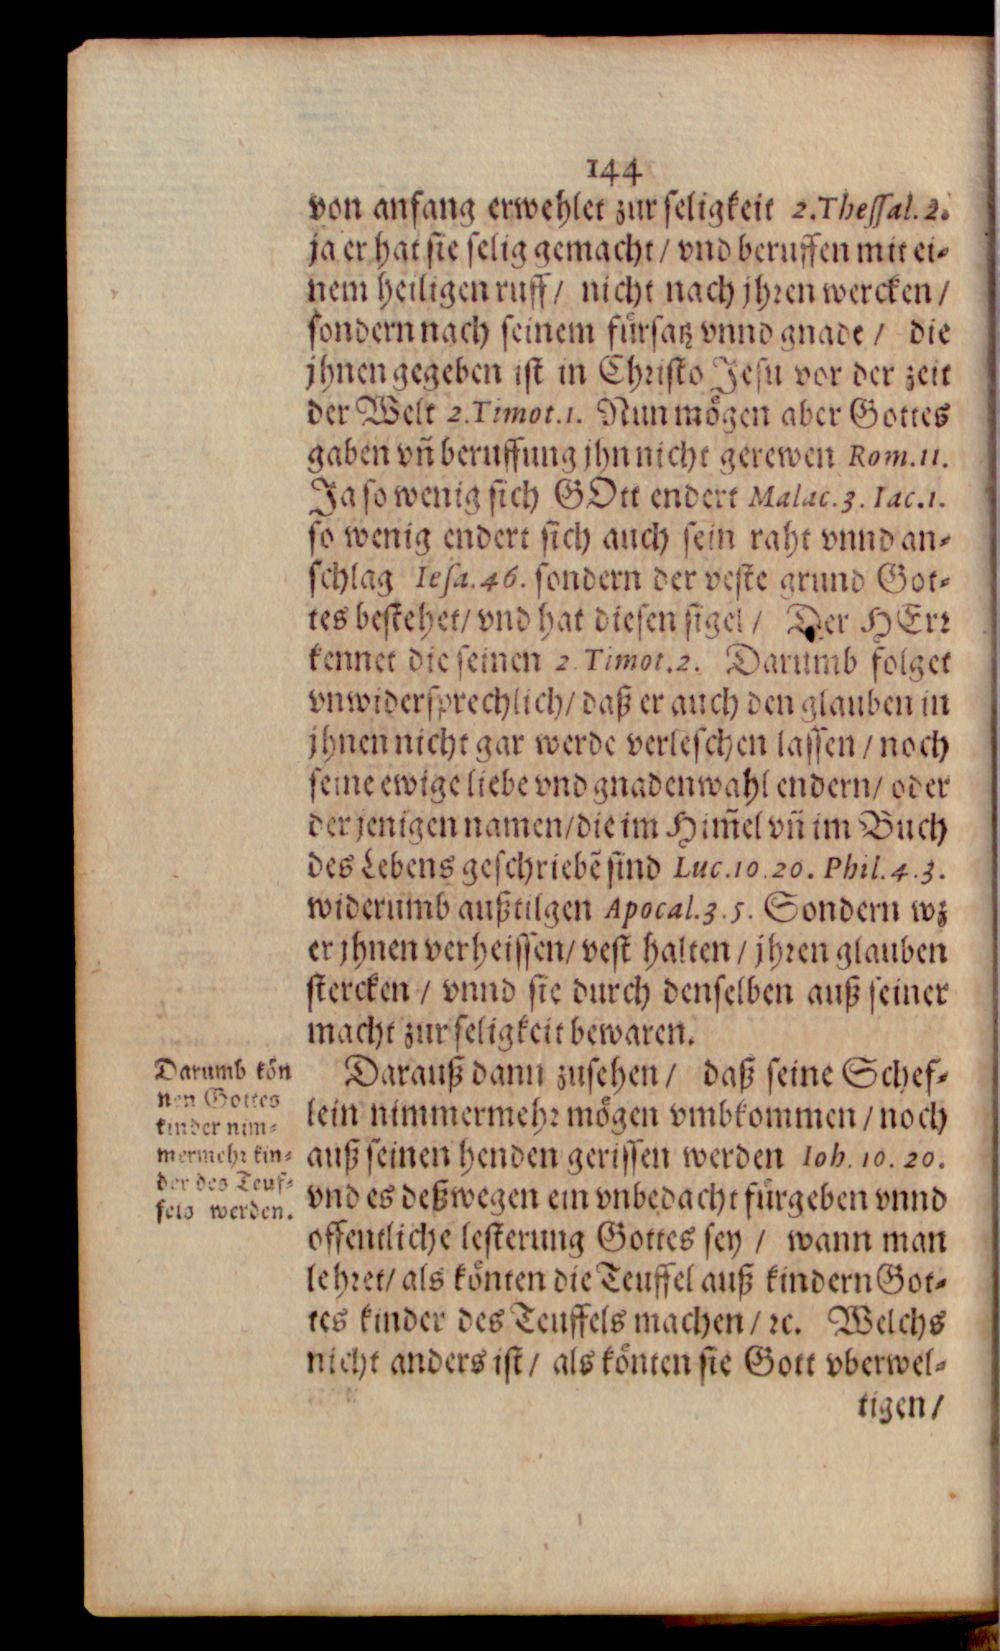 144
von anfang erwehlet zur seligkeit 2.Thessal.2.
ja er hat sie selig gemacht / vnd beruffen mit ei-
nem heiligen ruff / nicht nach jhren wercken /
sondern nach seinem fuͤrsatz vnnd gnade / die
jhnen gegeben ist in Christo Jesu vor der zeit
der Welt 2.Timot.1. Nun moͤgen aber Gottes
gaben vñ beruffung jhn nicht gerewen Rom.11.
Ja so wenig sich GOtt endert Malac.3. Iac.1.
so wenig endert sich auch sein raht vnnd an-
schlag Iesa.46. sondern der veste grund Got-
tes bestehet / vnd hat diesen sigel / Der HErr
kennet die seinen 2.Timot.2. Darumb folget
vnwidersprechlich / daß er auch den glauben in
jhnen nicht gar werde verleschen lassen / noch
seine ewige liebe vnd gnadenwahl endern / oder
der jenigen namen / die im Him̃el vñ im Buch
des Lebens geschriebẽ sind Luc.10.20. Phil.4.3.
widerumb außtilgen Apocal.3.5. Sondern wz
er jhnen verheissen / vest halten / jhren glauben
stercken / vnnd sie durch denselben auß seiner
macht zur seligkeit bewaren.
Darauß dann zusehen / daß seine Schef-
lein nimmermehr moͤgen vmbkommen / noch
auß seinen henden gerissen werden Ioh. 10. 20.
vnd es deßwegen ein vnbedacht fuͤrgeben vnnd
offentliche lesterung Gottes sey / wann man
lehret / als koͤnten die Teuffel auß kindern Got-
tes kinder des Teuffels machen / ꝛc. Welchs
nicht anders ist / als koͤnten sie Gott vberwel-
tigen /
Darumb koͤn
nen Gottes
kinder nim-
mermehr kin-
der des Teuf-
fels werden.